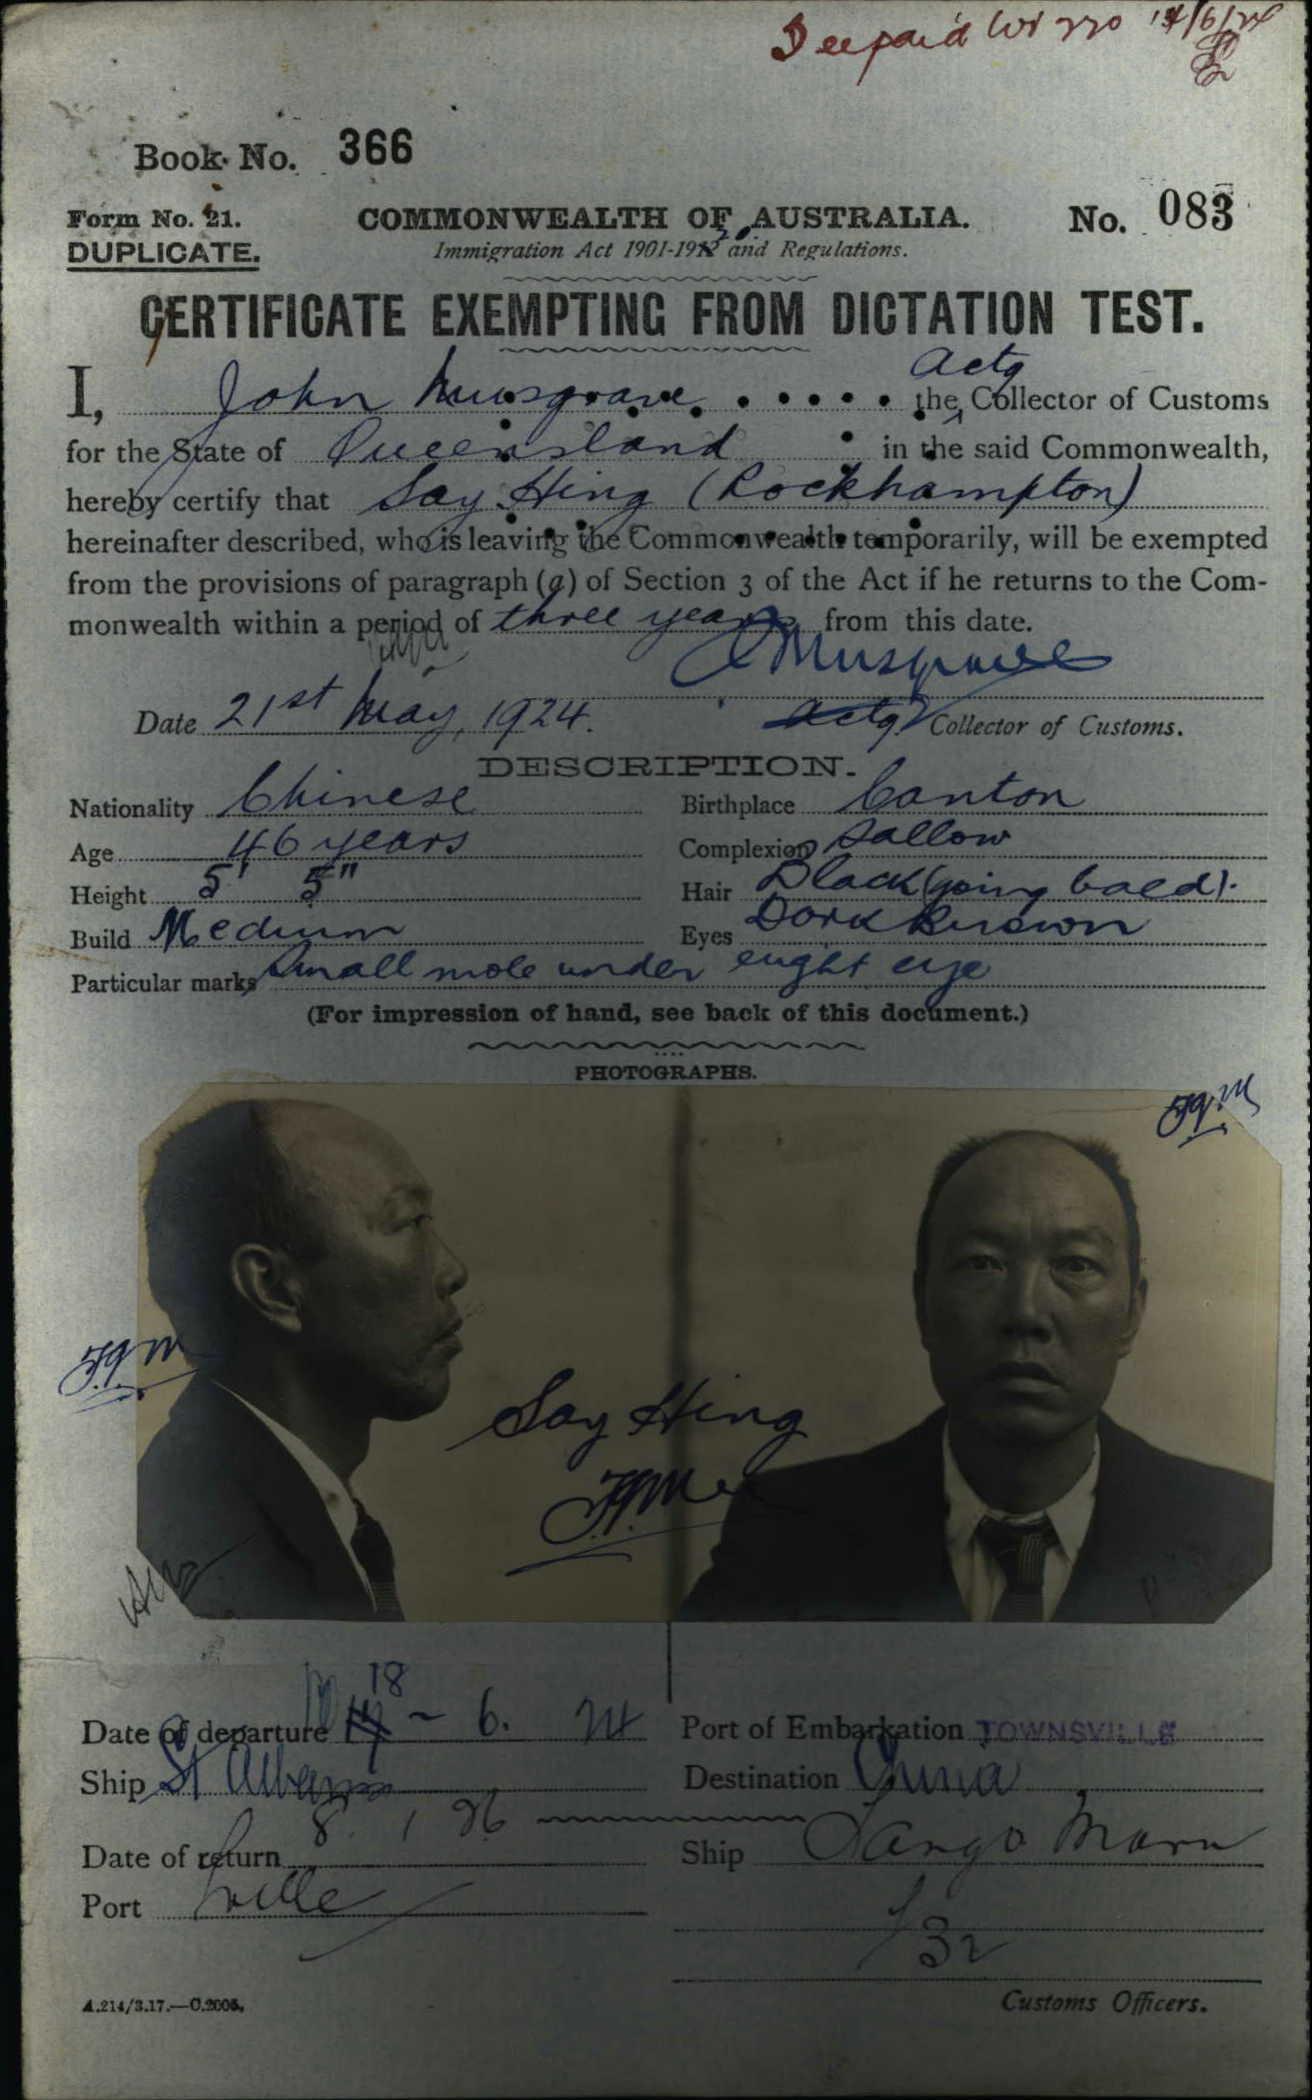 Fee paid 14/6/24
Book No. 366
Form No. 21.
COMMONWEALTH OF AUSTRALIA.
No. 083
DUPLICATE.
Immigration Act 1901-1920 and Regulations.
CERTIFICATE EXEMPTING FROM DICTATION TEST.
I, John Musgrave actg the Collector of Customs
for the State of Queensland in the said Commonwealth,
hereby certify that Say Hing (Rockhampton)
hereinafter described, who is leaving the Commonwealth temporarily, will be exempted
from the provisions of paragraph (a) of Section 3 of the Act if he returns to the Com-
monwealth within a period of three years from this date.
Musgrave
Date 21st May, 1924.
actg Collector of Customs.
DESCRIPTION.
Nationality Chinese
Birthplace Canton
Age 46 years
Complexion Sallow
Height 5' 5"
Hair Black (going bald).
Build Medium
Eyes Dark Brown
Particular marks Small mole under right eye
(For impression of hand, see back of this document.)
PHOTOGRAPHS.
Say Hing
Date of departure 18 - 6. 24
Port of Embarkation TOWNSVILLE
Ship St Albans
Destination China
Date of return 8. 1 26
Ship Tango Maru
Port Tville
/32
A.214/3.17.—C.2005.
Customs Officers.